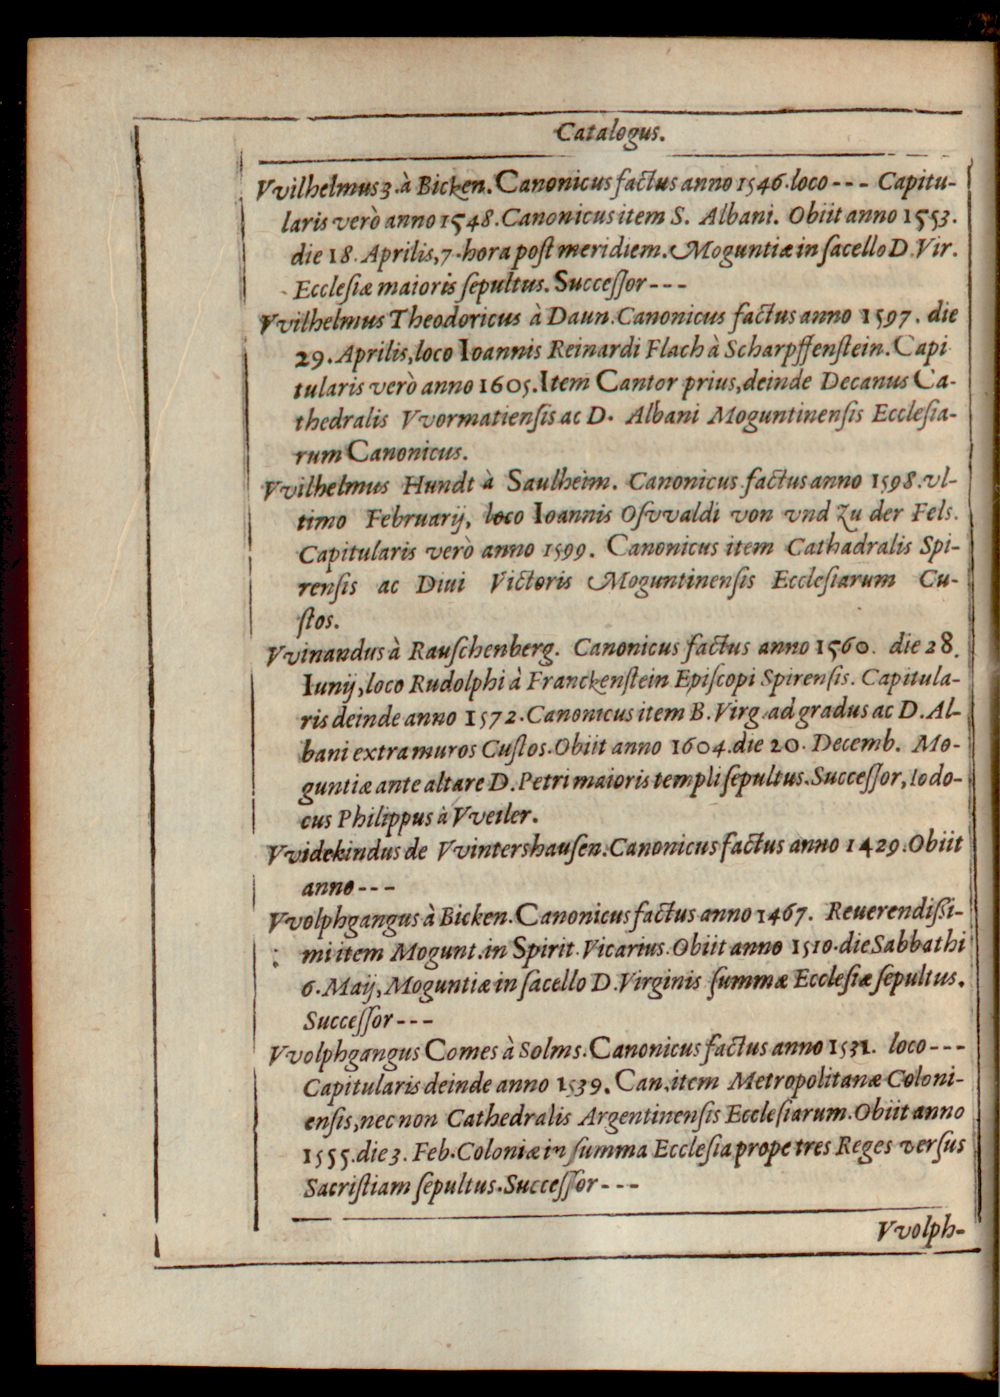 Catalogus.
Vvilhelmus 3. à Bicken. Canonicus factus anno 1546. loco - - - Capitu-
laris verò anno 1548. Canonicus item S. Albani. Obiit anno 1553.
die 18. Aprilis, 7. hora post meridiem. Moguntiæ in sacello D. Vir.
Ecclesiæ maioris sepultus. Successor - - -
Vvilhelmus Theodoricus à Daun. Canonicus factus anno 1597. die
29. Aprilis, loco Ioannis Reinardi Flach à Scharpffenstein. Capi
tularis verò anno 1605. Item Cantor prius, deinde Decanus Ca-
thedralis Vvormatiensis ac D. Albani Moguntinensis Ecclesia-
rum Canonicus.
Vvilhelmus Hundt à Saulheim. Canonicus factus anno 1598. vl-
timo Februarij, loco Ioannis Osvvaldi von vnd Zu der Fels.
Capitularis verò anno 1599. Canonicus item Cathadralis Spi-
rensis ac Diui Victoris Moguntinensis Ecclesiarum Cu-
stos.
Vvinandus à Rauschenberg. Canonicus factus anno 1560. die 28.
Iunij, loco Rudolphi à Franckenstein Episcopi Spirensis. Capitula-
ris deinde anno 1572. Canonicus item B. Virg. ad gradus ac D. Al-
bani extra muros Custos. Obiit anno 1604. die 20. Decemb. Mo-
guntiæ ante altare D. Petri maioris templi sepultus. Successor, Iodo-
cus Philippus à Vveiler.
Vvidekindus de Vvintershausen. Canonicus factus anno 1429. Obiit
anno - - -
Vvolphgangus à Bicken. Canonicus factus anno 1467. Reuerendißi-
mi item Mogunt. in Spirit. Vicarius. Obiit anno 1510. die Sabbathi
6. Maij, Moguntiæ in sacello D. Virginis summæ Ecclesiæ sepultus.
Successor - - -
Vvolphgangus Comes à Solms. Canonicus factus anno 1531. loco - - -
Capitularis deinde anno 1539. Can. item Metropolitanæ Coloni-
ensis, nec non Cathedralis Argentinensis Ecclesiarum. Obiit anno
1555. die 3. Feb. Coloniæ in summa Ecclesia prope tres Reges versus
Sacristiam sepultus. Successor - - -
Vvolph-